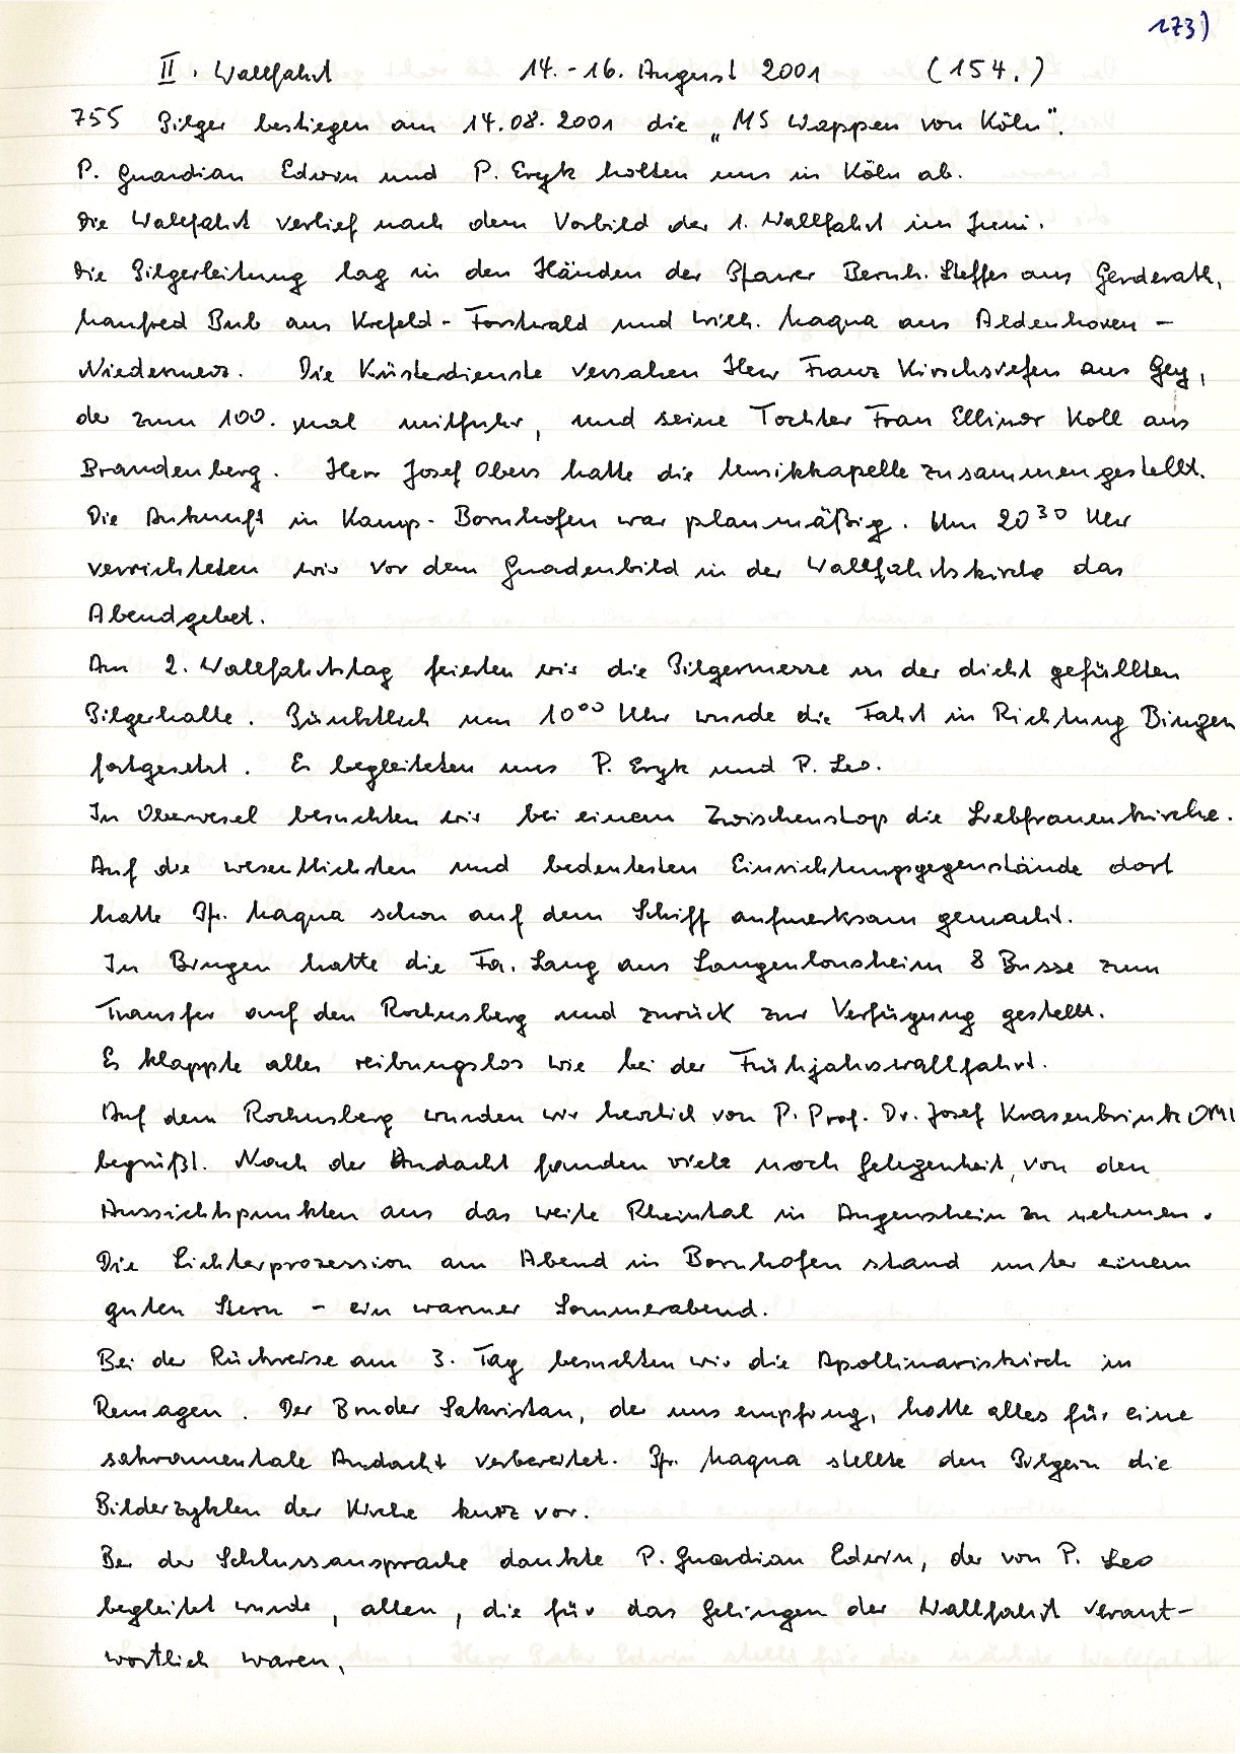 173)
II. Wallfahrt 14.-16. August 2001 (154.)
755 Pilger bestiegen am 14.08.2001 die „MS Wappen von Köln".
P. Guardian Edwin und P. Eryk holten uns in Köln ab.
Die Wallfahrt verlief nach dem Vorbild der 1. Wallfahrt im Juni.
Die Pilgerleitung lag in den Händen der Pfarrer Bernh. Steffes aus Gerderath,
Manfred Bub aus Krefeld-Forstwald und Wilh. Maqua aus Aldenhoven-
Niedermerz. Die Küsterdienste versahen Herr Franz Kirschsiefen aus Gey,
der zum 100. mal mitfuhr, und seine Tochter Frau Ellinor Koll aus
Brandenberg. Herr Josef Obers hatte die Musikkapelle zusammengestellt.
Die Ankunft in Kamp-Bornhofen war planmäßig. Um 20³⁰ Uhr
verrichteten wir vor dem Gnadenbild in der Wallfahrtskirche das
Abendgebet.
Am 2. Wallfahrtstag feierten wir die Pilgermesse in der dicht gefüllten
Pilgerhalle. Pünktlich um 10⁰⁰ Uhr wurde die Fahrt in Richtung Bingen
fortgesetzt. Es begleiteten uns P. Eryk und P. Leo.
In Oberwesel besuchten wir bei einem Zwischenstop die Liebfrauenkirche.
Auf die wesentlichsten und bedeutesten Einrichtungsgegenstände dort
hatte Pfr. Maqua schon auf dem Schiff aufmerksam gemacht.
In Bingen hatte die Fa. Lang aus Langenlonsheim 8 Busse zum
Transfer auf den Rochusberg und zurück zur Verfügung gestellt.
Es klappte alles reibungslos wie bei der Frühjahrswallfahrt.
Auf dem Rochusberg wurden wir herzlich von P. Prof. Dr. Josef Krasenbrink OMI
begrüßt. Nach der Andacht fanden viele noch Gelegenheit, von den
Aussichtspunkten aus das weite Rheintal in Augenschein zu nehmen.
Die Lichterprozession am Abend in Bornhofen stand unter einem
guten Stern - ein warmer Sommerabend.
Bei der Rückreise am 3. Tag besuchten wir die Apollinariskirch in
Remagen. Der Bruder Sakristan, der uns empfing, hatte alles für eine
sakramentale Andacht verbereitet. Pfr. Maqua stellte den Pilgern die
Bilderzyklen der Kirche kurz vor.
Bei der Schlussansprache dankte P. Guardian Edwin, der von P. Leo
begleitet wurde, allen, die für das Gelingen der Wallfahrt verant-
wortlich waren,